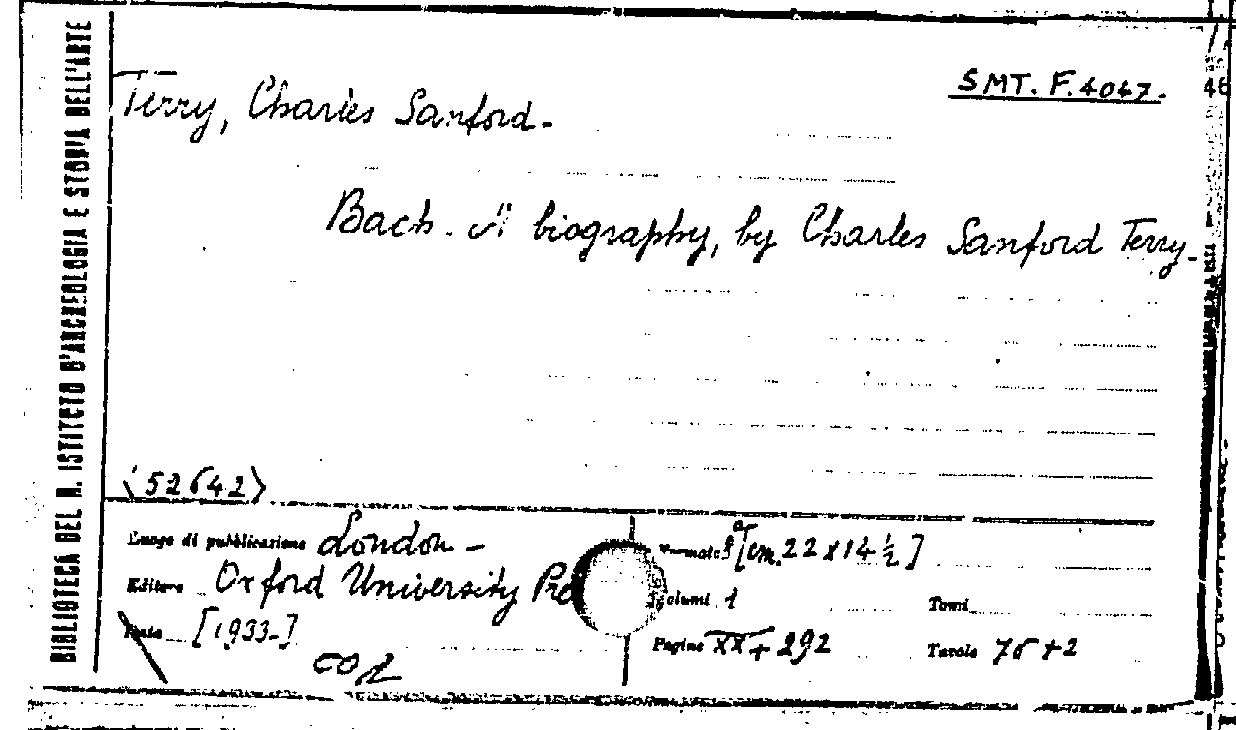 BIBLIOTECA DEL R. ISTITUTO D'ARCHEOLOGIA E STORIA DELL'ARTE
SMT. F. 4047.
Terry, Charles Sanford.
Bach. A biography, by Charles Sanford Terry.
(52642)
Luogo di pubblicazione London -
Formato 8º [cm. 22 x 14 ½ ]
Editore Oxford University Pre
Volumi 1 Tomi
Data [1933-]
Pagine XX + 292 Tavole 76 + 2